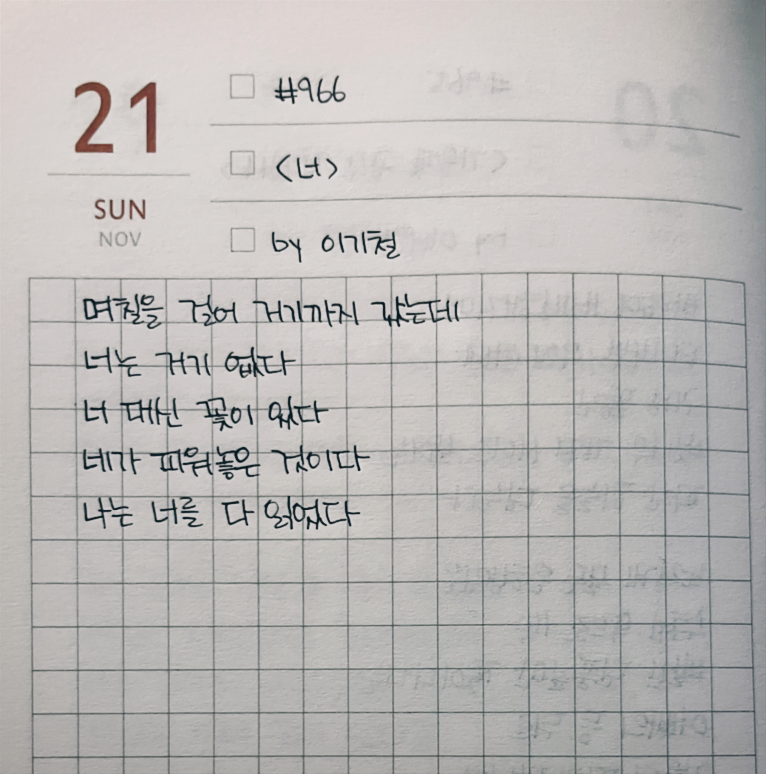 21
SUN
NOV
#966
<너>
by 이기철
며칠을 걸어 거기까지 갔는데
너는 거기 없다
너 대신 꽃이 있다
네가 피워놓은 것이다
나는 너를 다 읽었다